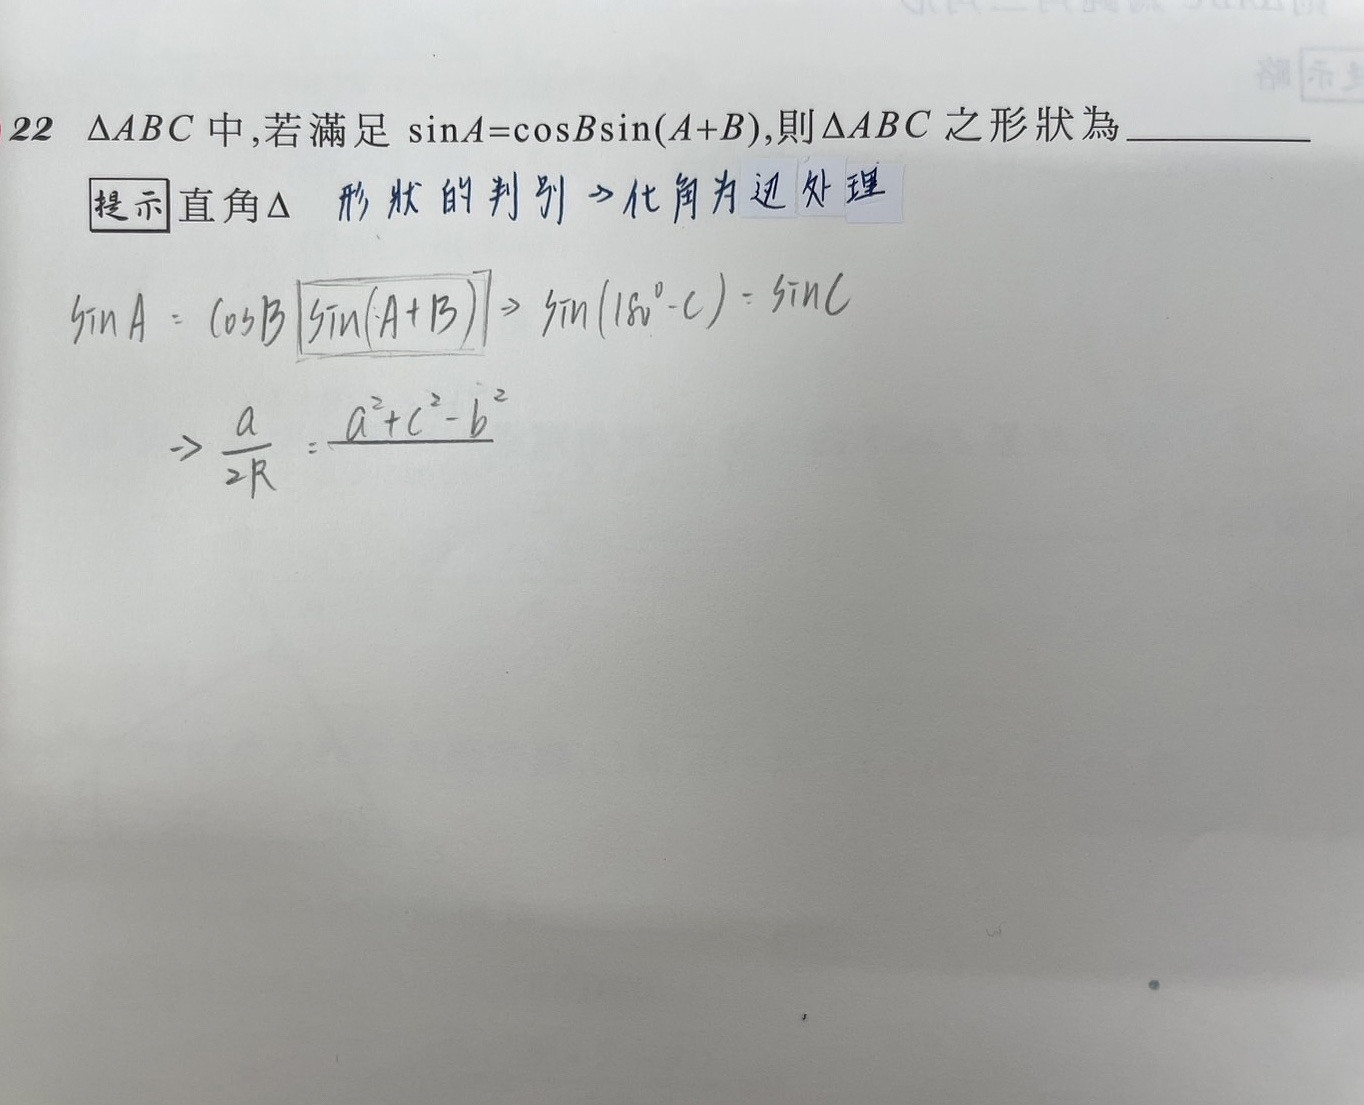 22 ΔABC 中,若滿足 sinA=cosBsin(A+B),則ΔABC 之形狀為
提示 直角Δ 形狀的判別→化角为边处理
sinA = cosB sin(A+B) → sin(180°-C) = sinC
→ a/2R = a²+c²-b²